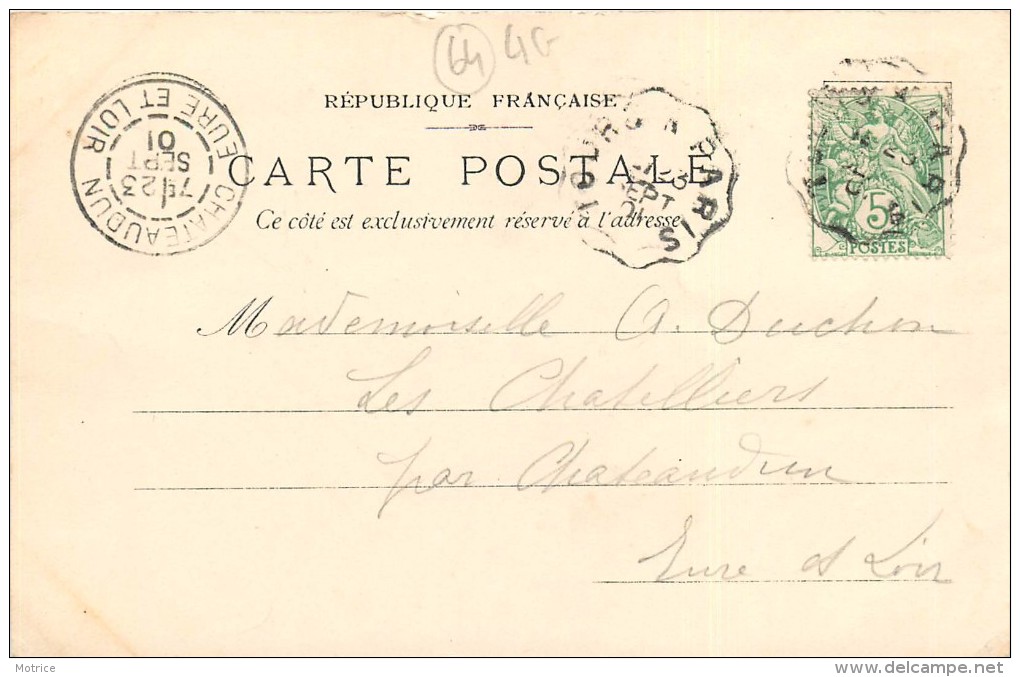 64 4G
RÉPUBLIQUE FRANÇAISE
CARTE POSTALE
Ce côté est exclusivement réservé à l'adresse
CHATEAUDUN EURE ET LOIR
7E 23
SEPT
01
A PARIS
SEPT
01
5
POSTES
Mademoiselle A. Duchon
Les Chatelliers
par Chateaudun
Eure et Loir
Motrice
http://www.delcampe.net